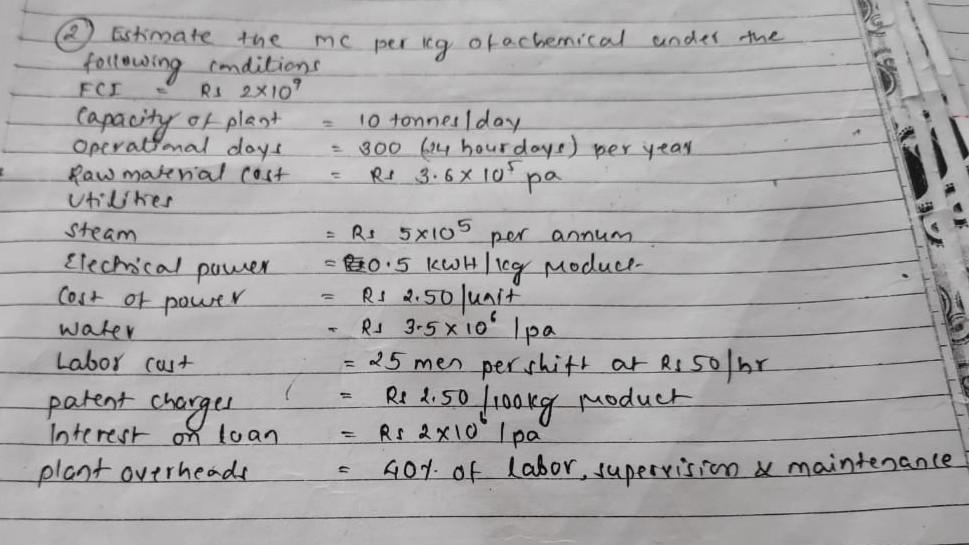 ② Estimate the mc per kg of a chemical under the
following conditions
FCI = Rs 2×10⁹
Capacity of plant = 10 tonnes/day
Operational days = 300 (24 hour days) per year
Raw material cost = Rs 3.6×10⁵ pa
Utilities
Steam = Rs 5×10⁵ per annum
Electrical power = 0.5 KWH/kg product
Cost of power = Rs 2.50/unit
Water = Rs 3.5×10⁶ /pa
Labor cost = 25 men per shift at Rs 50/hr
patent charges = Rs 2.50 /100kg product
Interest on loan = Rs 2×10⁶ /pa
plant overheads = 40% of labor, supervision & maintenance